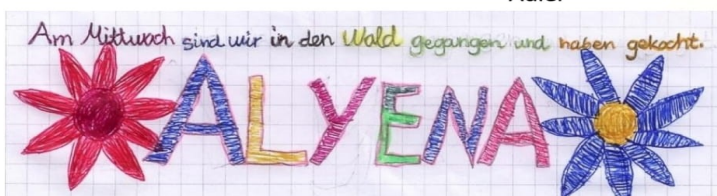 Am Mittwoch sind wir in den Wald gegangen und haben gekocht.
ALYENA